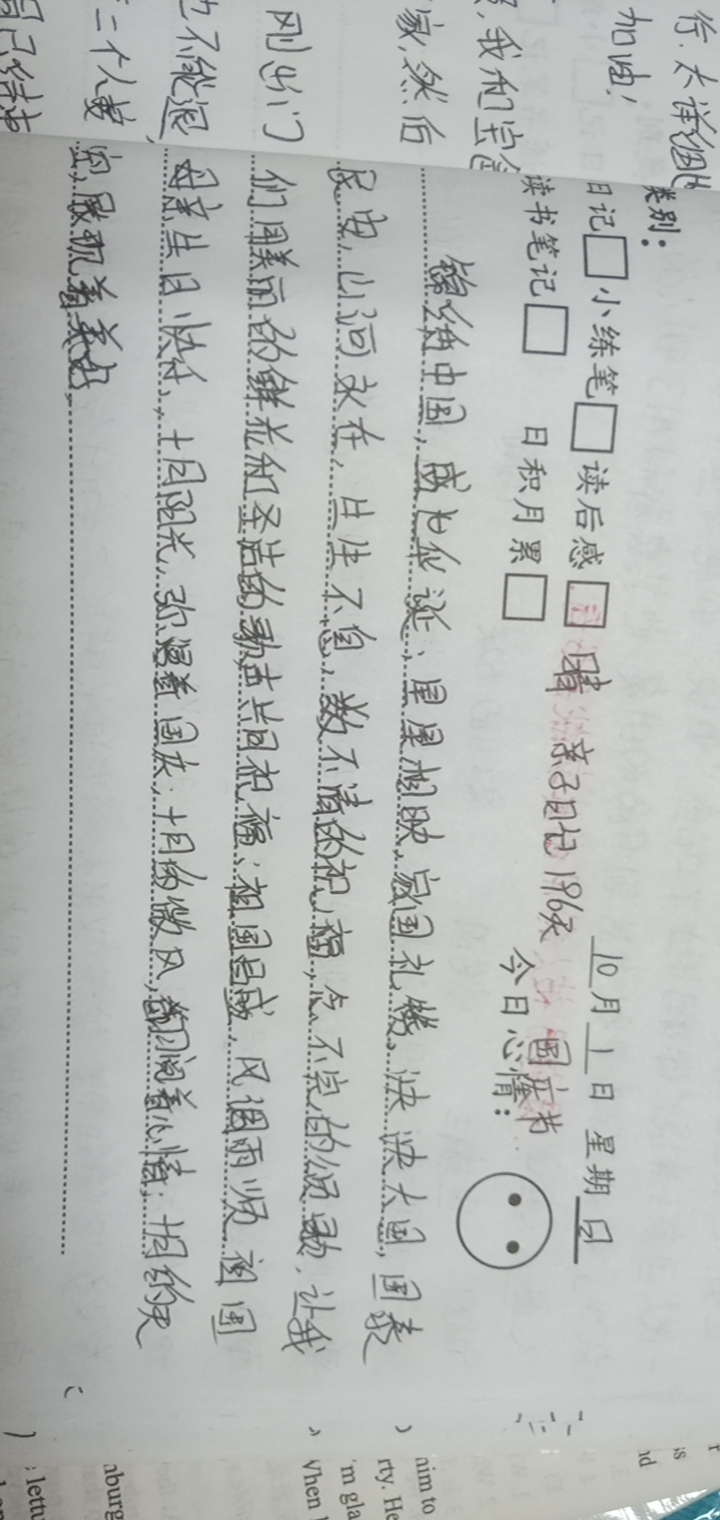 行.太详细
加油！
我和宝
家,然后
刚出门
不能退
二个人数
已结束
类别：
日记□ 小练笔□ 读后感□ 10月1日 星期日
晴 亲子日记 196天
读书笔记□ 日积月累□ 今日心情：
国庆节
锦绣中国，盛世华诞、星星相映，家国礼赞、泱泱大国，国泰
民安，山河永在，生生不息，数不清的祝福，念不完的颂歌，让我
们用美丽的鲜花和圣洁的歌声共同祝福：祖国昌盛，风调雨顺，祖国
母亲生日快乐，十月阳光，弥漫着国庆；十月的微风，翻阅着心情；十月的天
空，展现着美好。
aim to
rty. He
'm gla
When
nburg
; lettu
is
nd